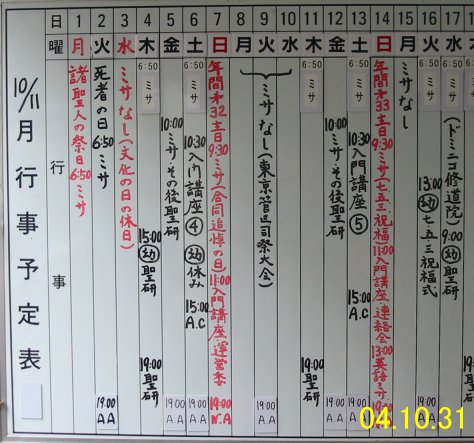 10/11月行事予定表
日 1 2 3 4 5 6 7 8 9 10 11 12 13 14 15 16 17
曜 月 火 水 木 金 土 日 月 火 水 木 金 土 日 月 火 水
行事
諸聖人の祭日 6:50 ミサ
死者の日 6:50 ミサ
19:00 AA
ミサなし(文化の日の休日)
6:50 ミサ
15:00 ㊙聖研
19:00 聖研
10:00 ミサ・その後聖研
19:00 AA
6:50 ミサ
10:30 入門講座④ 幼 休み
15:00 A.C
19:00 AA
年間才32主日 9:30 ミサ(合同追悼の日) 11:00 入門講座・運営委
19:00 N.A
ミサなし(東京管区司祭大会)
19:00 AA
6:50 ミサ
19:00 聖研
10:00 ミサ・その後聖研
19:00 AA
6:50 ミサ
10:30 入門講座⑤
15:00 A.C
19:00 AA
年間才33主日 9:30 ミサ(七五三祝福) 11:00 入門講座・連絡会 13:00 英語ミサ
ミサなし
6:50 ミサ
13:00 幼 七五三祝福式
6:50 ミサ
(ドミニコ修道院) 9:00 幼 聖研
04.10.31